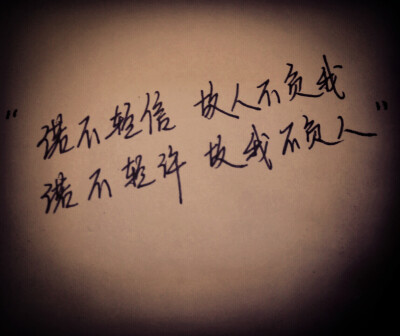 “诺不轻信 故人不负我
诺不轻许 故我不负人”